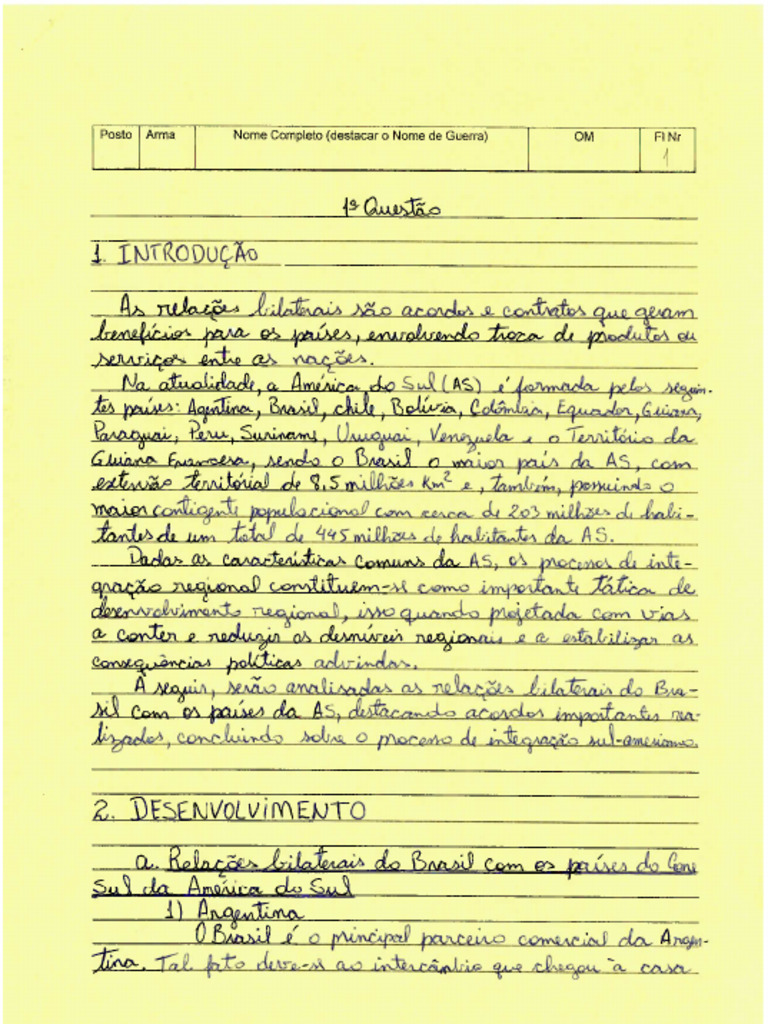 Posto Arma Nome Completo (destacar o Nome de Guerra) OM Fl Nr
1
1ª Questão
1. INTRODUÇÃO
As relações bilaterais são acordos e contratos que geram
benefícios para os países, envolvendo troca de produtos ou
serviços entre as nações.
Na atualidade, a América do Sul (AS) é formada pelos seguin-
tes países: Agentina, Brasil, chile, Bolívia, Colômbia, Equador, Guiana,
Paraguai, Peru, Suriname, Uruguai, Venezuela e o Território da
Guiana Francesa, sendo o Brasil o maior país da AS, com
extensão territórial de 8,5 milhões Km² e, também, possuindo o
maior contigente populacional com cerca de 203 milhões de habi-
tantes de um total de 445 milhões de habitantes da AS.
Dadas as características comuns da AS, os processos de inte-
gração regional constituem-se como importante tática de
desenvolvimento regional, isso quando projetada com vias
a conter e reduzir os desníveis regionais e a estabilizar as
consequências políticas advindas.
A seguir, serão analisadas as relações bilaterais do Bra-
sil com os países da AS, destacando acordos importantes rea-
lizados, concluindo sobre o processo de integração sul-americano.
2. DESENVOLVIMENTO
a. Relações bilaterais do Brasil com os países do Cone
Sul da América do Sul
1) Argentina
O Brasil é o principal parceiro comercial da Argen-
tina. Tal fato deve-se ao intercâmbio que chegou à casa